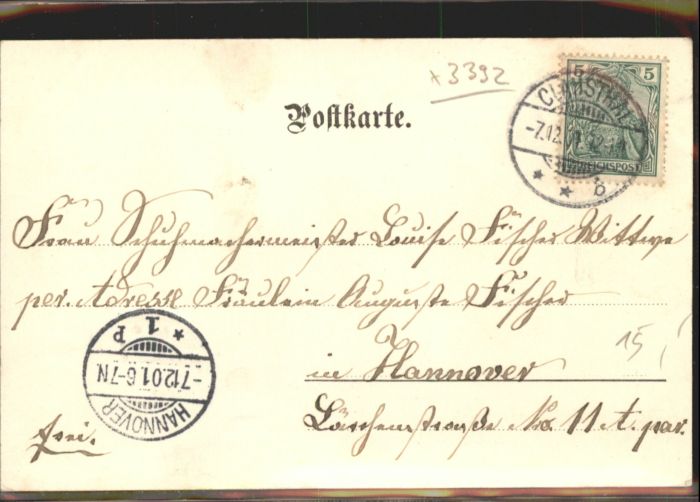 x3392
5 5
REICHSPOST
-7.12.
* * b
Postkarte.
Frau Schuhmachermeister Louise Fischer Wittwe
per. Adresse Fräulein Auguste Fischer
in Hannover
15
straße No. 11 t. par.
frei.
HANNOVER
-7.12.01.6-7N
* 1 P